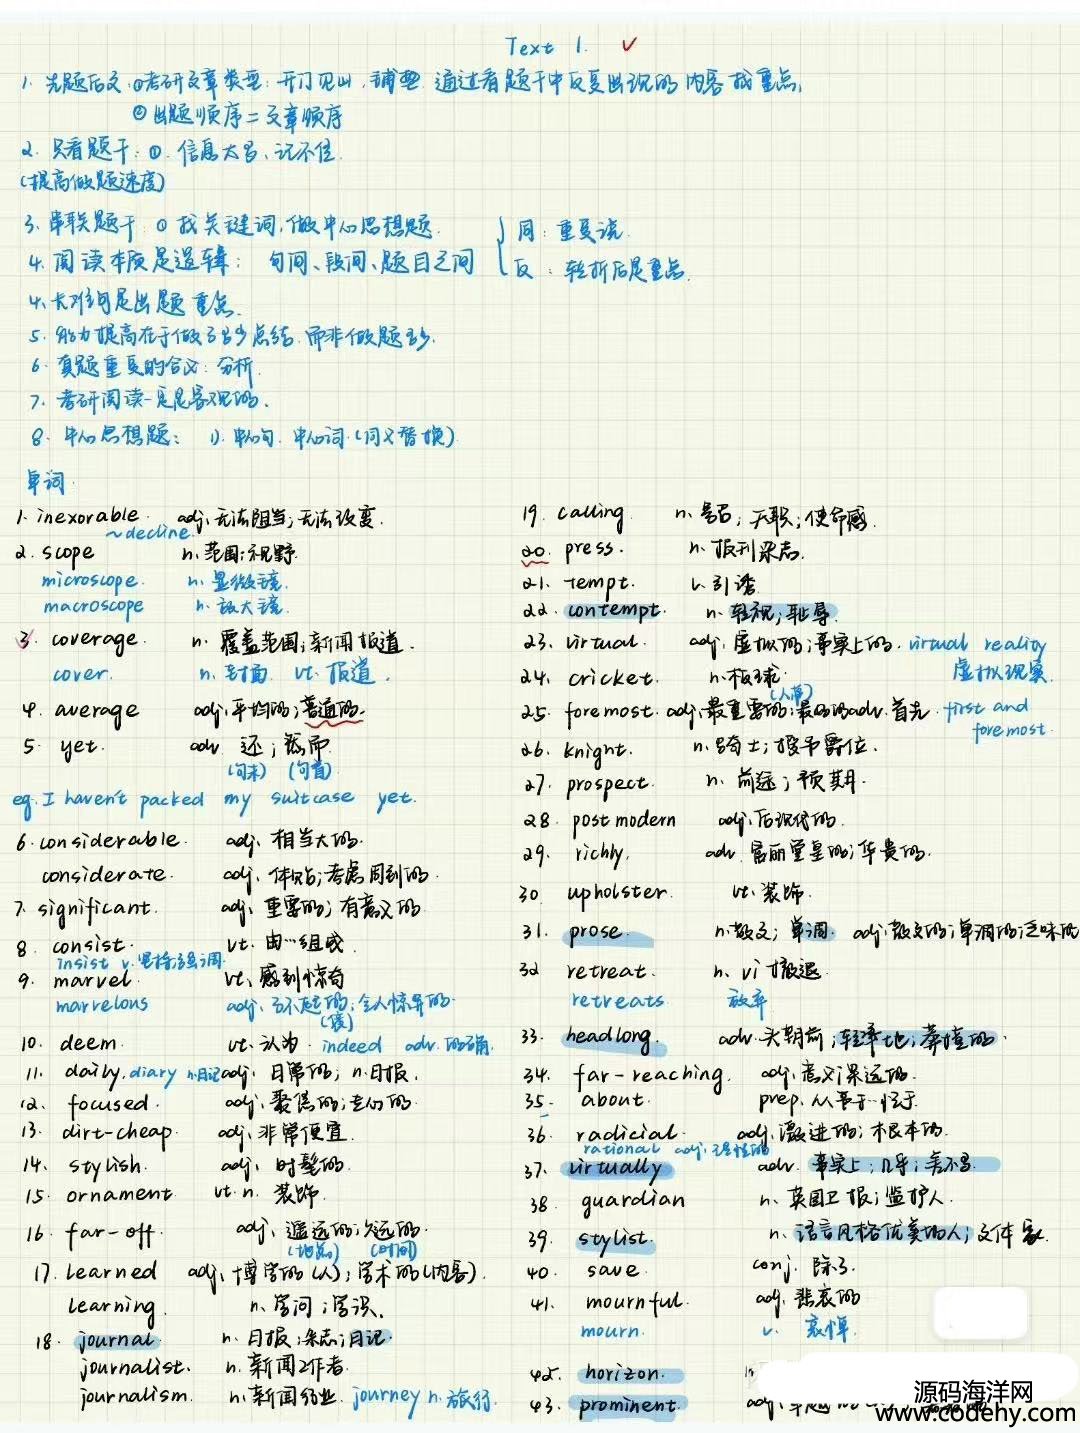 Text 1.
1. 先题后文: ①考研文章类型: 开门见山, 铺垫 通过看题干中反复出现的内容找重点,
② 出题顺序=文章顺序
2. 只看题干: ①. 信息太多、记不住.
(提高做题速度)
3. 串联题干 ① 找关键词, 做中心思想题.
4. 阅读本质是逻辑: 句间、段间、题目之间
同: 重复说.
反: 转折后是重点.
4. 长难句是出题重点.
5. 能力提高在于做了多少总结, 而非做题多少.
6. 真题重复的含义: 分析.
7. 考研阅读一定是客观的.
8. 中心思想题: 1). 中心句. 中心词. (同义替换)
单词.
1. inexorable. adj. 无法阻挡; 无法改变.
~decline.
2. scope n. 范围; 视野.
microscope. n. 显微镜.
macroscope n. 放大镜.
3. coverage. n. 覆盖范围; 新闻报道.
cover. n. 封面. vt. 报道.
4. average adj. 平均的; 普通的.
5. yet. adv. 还; 然而
(句末) (句首)
eg. I haven't packed my suitcase yet.
6. considerable. adj. 相当大的.
considerate. adj. 体贴; 考虑周到的.
7. significant. adj. 重要的; 有意义的
8. consist. vt. 由…组成
insist v. 坚持; 强调.
9. marvel vt. 感到惊奇
marvelous adj. 了不起的; 令人惊异的.
10. deem vt. 认为. indeed adv. 的确
11. daily. diary n.日记 adj. 日常的; n.日报.
12. focused. adj. 聚焦的;
13. dirt-cheap. adj. 非常便宜.
14. stylish. adj. 时髦的.
15. ornament. vt. n. 装饰.
16. far-off. adj. 遥远的; 久远的.
(地点) (时间)
17. learned adj. 博学的(人); 学术的(内容).
learning. n. 学问; 学识.
18. journal n. 日报; 杂志; 日记.
journalist. n. 新闻工作者.
journalism. n. 新闻行业. journey n. 旅行.
19. calling. n. 号召; 天职; 使命感.
20. press. n. 报刊杂志.
21. tempt. v. 引诱
22. contempt. n. 轻视; 耻辱
23. virtual. adj. 虚拟的; 事实上的. virtual reality
虚拟现实.
24. cricket. n. 板球.
25. foremost. adj. 最重要的; 最好的 adv. 首先. first and
foremost.
26. knight. n. 骑士; 授予爵位.
27. prospect n. 前途; 预期.
28. postmodern adj. 后现代的.
29. richly. adv. 富丽堂皇的; 华贵的.
30 upholster. vt. 装饰.
31. prose. n. 散文; 单调. adj. 散文的; 单调的; 乏味的
32 retreat. n. vi 撤退.
retreats. 放弃
33. headlong. adv. 头朝前; 轻率地; 莽撞的.
34. far-reaching. adj. 意义深远的.
35. about. prep.
36. radicial. adj. 激进的; 根本的.
rational adj. 理性的
37. virtually adv. 事实上; 几乎; 差不多.
38. guardian n. 英国卫报; 监护人.
39. stylist. n. 语言风格优美的人; 文体家.
40. save. conj. 除了.
41. mournful. adj. 悲哀的
mourn. v. 哀悼
42. horizon.
43. prominent. adj.
源码海洋网
www.codehy.com